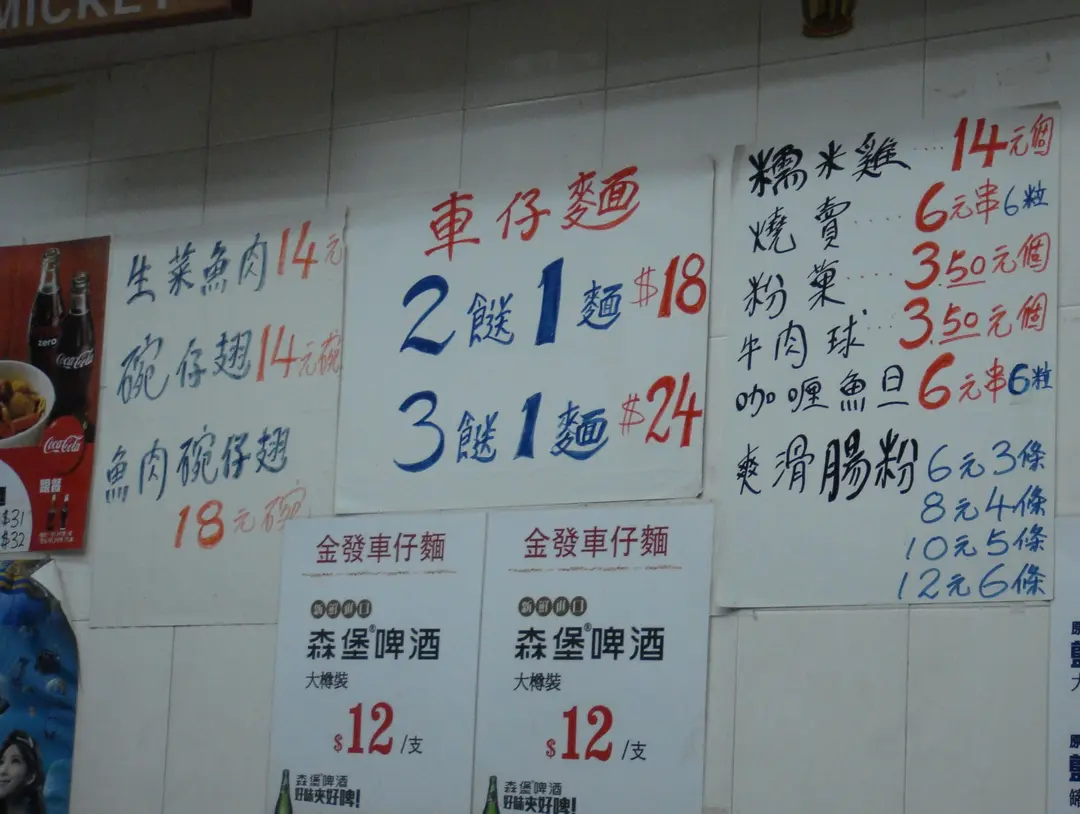 MICKEY
zero
Coca-Cola
Coca-Cola
跟餐
$31
$32
生菜魚肉14元
碗仔翅14元碗
魚肉碗仔翅
18元碗
車仔麵
2餸1麵$18
3餸1麵$24
糯米雞‥‥14元個
燒賣‥‥‥6元串6粒
粉菓‥‥3.50元個
牛肉球‥‥3.50元個
咖喱魚旦6元串6粒
爽滑腸粉6元3條
8元4條
10元5條
12元6條
金發車仔麵
森堡®啤酒
大樽裝
$12/支
森堡®啤酒
好味夾好啤!
金發車仔麵
森堡®啤酒
大樽裝
$12/支
森堡®啤酒
好味夾好啤!